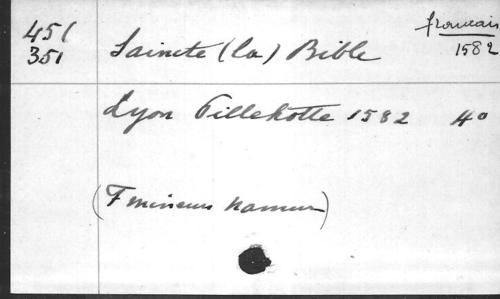 451
351
français
1582
Saincte (la) Bible
Lyon Pillehotte 1582 4º
(F mineurs Namur)